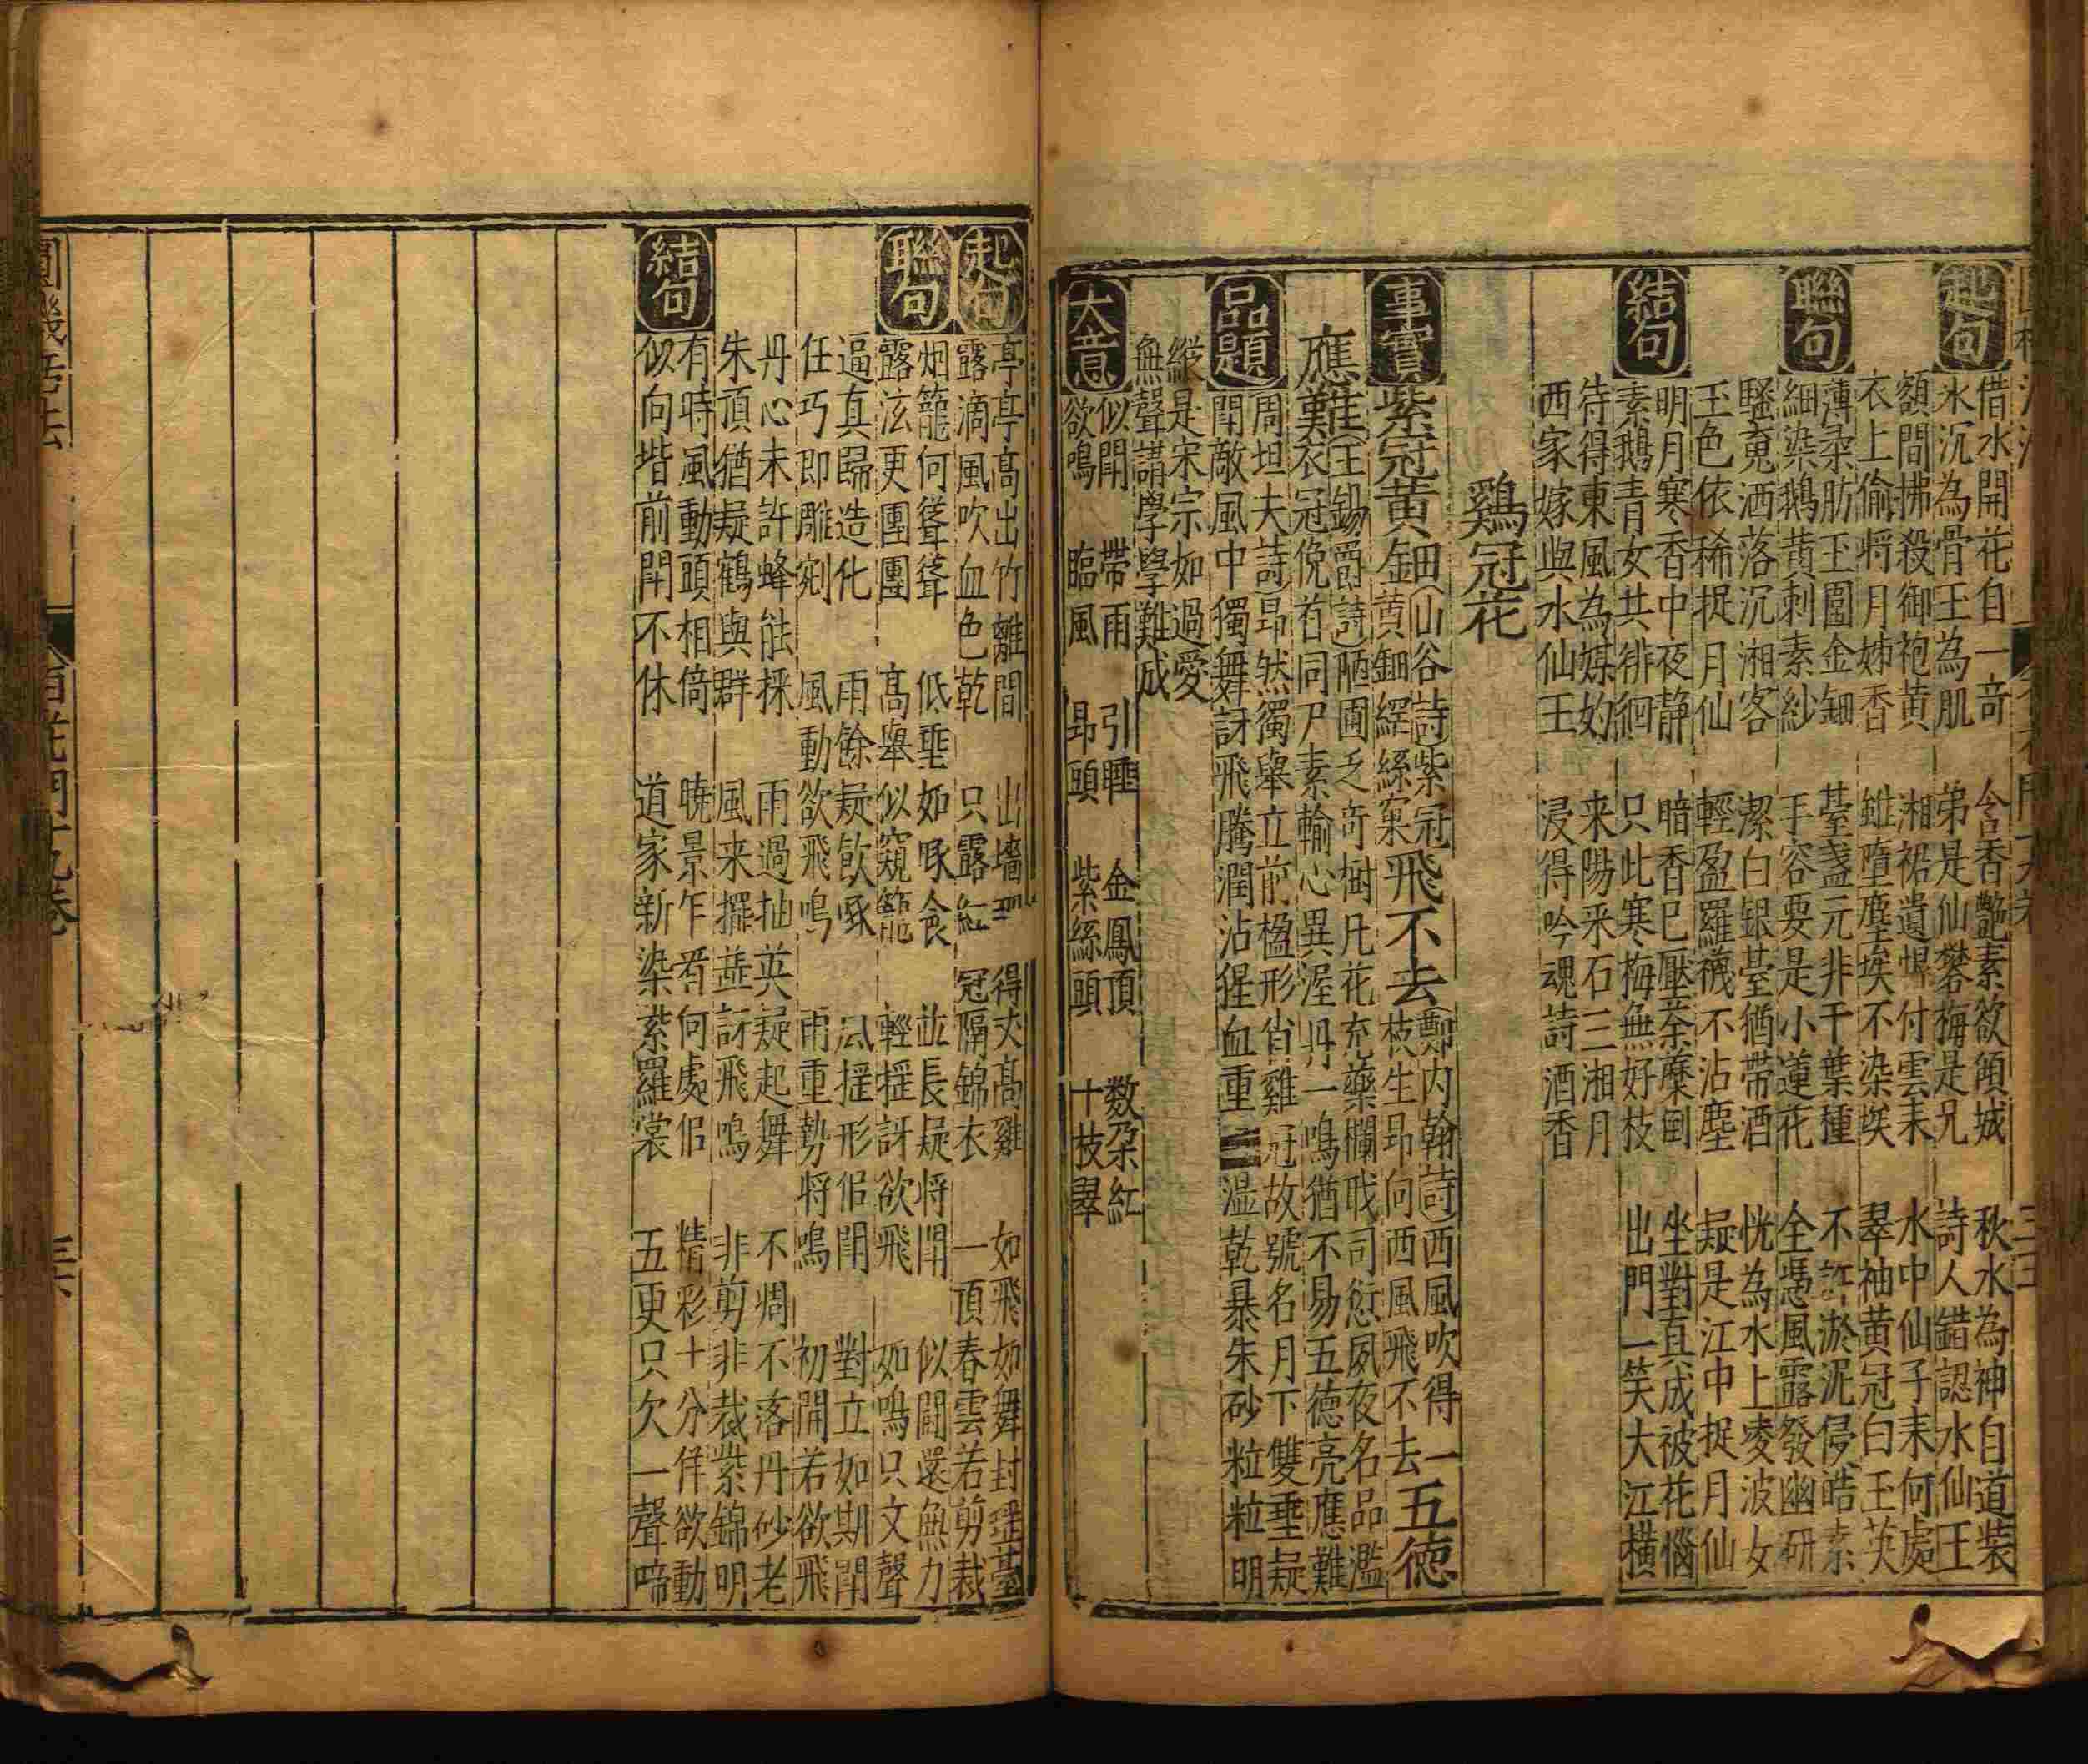 起句
借水開花自一奇　含香艷素欲傾城　秋水為神自道裝
水沉為骨玉為肌　弟是仙礬梅是兄　詩人錯認水仙王
額間拂殺御袍黄　湘裙遺付雲来　水中仙子来何處
衣上偷将月姊香　雖墮塵埃不染埃　翠袖黄冠白玉英
聯句
薄朵肪玉圓金鈿　薹盞元非千葉種　不許淤泥侵皓素
細染鵝黄刺素紗　手容要是小蓮花　全憑風露發幽研
騷䰟洒落沉湘客　潔白銀薹猶帶酒　恍為水上凌波女
玉色依稀捉月仙　輕盈羅襪不沾塵　疑是江中捉月仙
結句
明月寒香中夜静　暗香已壓荼蘪倒　坐對真成被花惱
素鵝青女共徘徊　只此寒梅無好枝　出門一笑大江橫
待得東風為媒妁　来陽采石三湘月
西家嫁與水仙王　浸得吟魂詩酒香
鷄冠花
事實　紫冠黄鈿(山谷詩)紫冠黄鈿網絲窠　飛不去(鄭内翰詩)西風吹得一枝生昂向西風飛不去　五德
應難(王錫爵詩)陋圃乏奇樹凡花充藥欄戢司愆夙夜名品濫衣冠俛首同尸素輸心異渥丹一鳴猶不易五德亮應難
品題　周坦夫詩)昂然獨舉立前楹形肖雞冠故號名月下雙垂疑
閗敵風中獨舞訝飛騰潤沾猩血重重湿乾暴朱砂粒粒明
縱是宋宗如過愛
無聲講學學難成
大意　似閗　帶雨　引睡　金鳳頂　数朶紅
欲鳴　臨風　昂頭　紫絲頭　十枝翠
起句
亭亭髙出竹離間　出墻　得丈髙雞　如飛如舞封瑶薹
露滴風吹血色乾　只露紅　冠隔錦衣　一頂春雲若剪裁
聯句
烟籠何聳聳　低垂如啄食　並長疑将閗　似闘還無力
露泫更團團　髙舉似窺籠　輕摇訝欲飛　如鳴只文聲
逼真歸造化　雨餘疑飲啄　風摇形佀閗　對立如期閗
任巧即雕剜　風動欲飛鳴　雨重勢将鳴　初開若欲飛
丹心未許蜂能採　雨過抽英疑起舞　不凋不落丹砂老
朱頂猶疑鶴與群　風来擺蕋訝飛鳴　非剪非裁紫錦明
結句
有時風動頭相倚　暁景乍看何處佀　精彩十分佯欲動
似向堦前閗不休　道家新染紫羅裳　五更只欠一聲啼
百花門十九卷